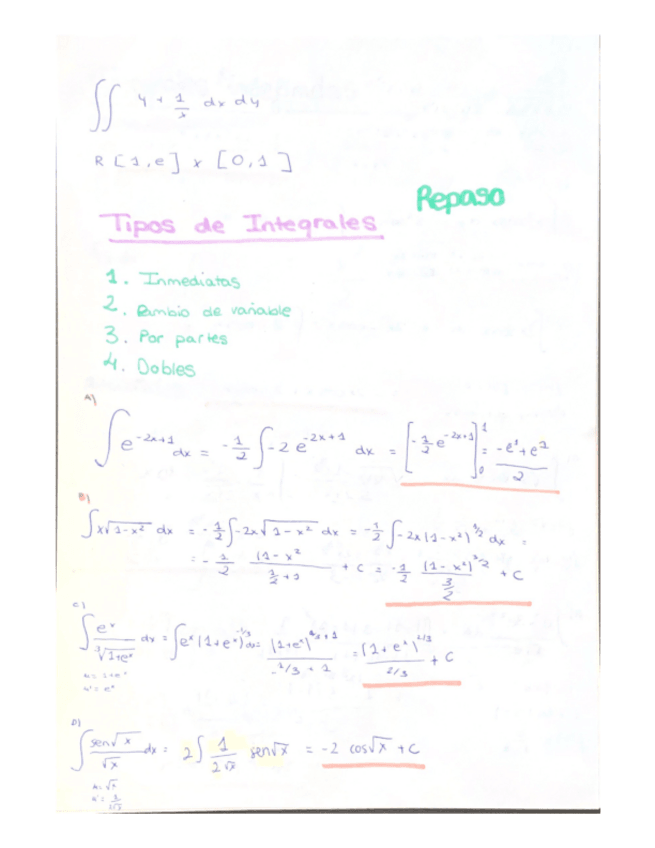 ∬ y + 1/x dx dy
R [1,e] x [0,1]
Repaso
Tipos de Integrales
1. Inmediatas
2. Cambio de variable
3. Por partes
4. Dobles
A)
∫ e^(-2x+1) dx = -1/2 ∫ -2 e^(-2x+1) dx = [-1/2 e^(-2x+1)]₀¹ = (-e¹+e^1)/2
B)
∫ x√(1-x²) dx = -1/2 ∫ -2x√(1-x²) dx = -1/2 ∫ -2x(1-x²)^(1/2) dx =
= -1/2 (1-x²)/(1/2+1) + C = -1/2 (1-x²)^(3/2)/(3/2) + C
C)
∫ e^x/∛(1+e^x) dx = ∫ e^x (1+e^x)^(-1/3) dx = (1+e^x)/(-1/3+1) = (1+e^x)^(2/3)/(2/3) + C
u = 1+e^x
u' = e^x
D)
∫ sen√x/√x dx = 2∫ 1/(2√x) sen√x = -2 cos√x + C
u = √x
u' = 1/(2√x)